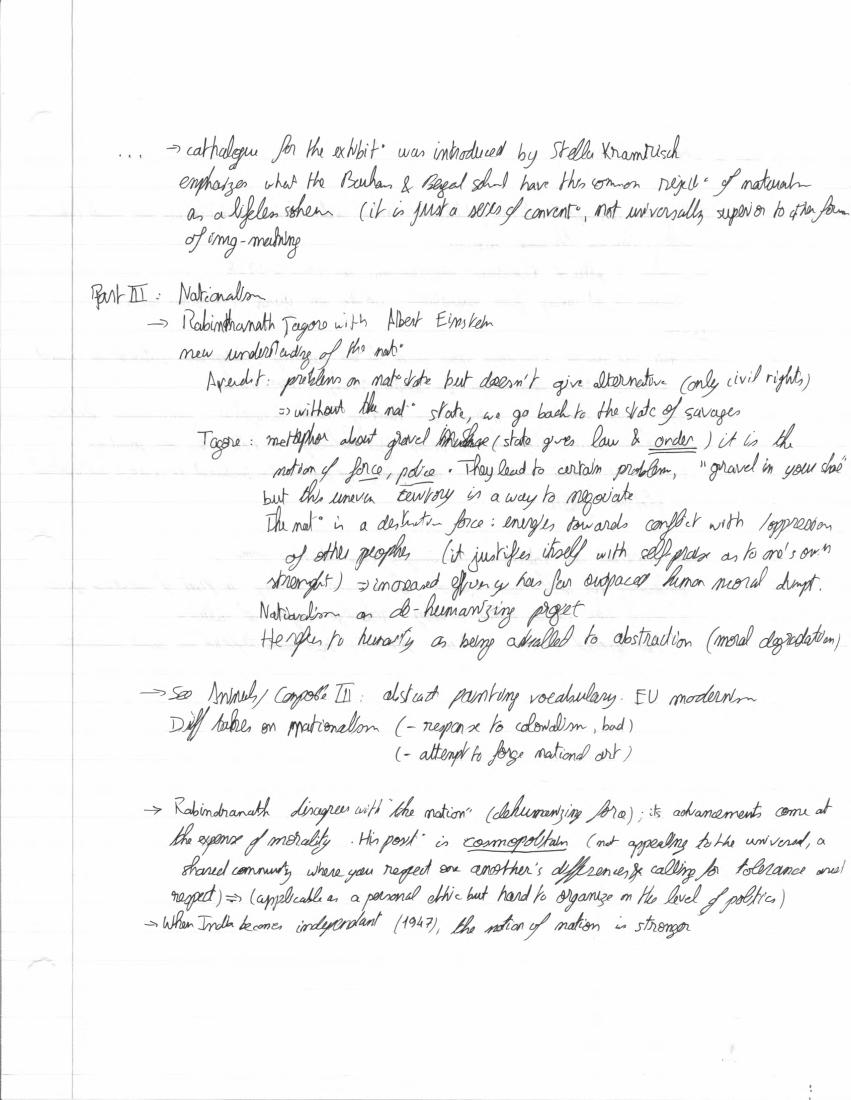 ... → cathalogue for the exhibit° was introduced by Stella Kramrisch
emphasizes what the Bauhau & Begal school have this common reject° of materialism
as a lifeless schem (it is just a series of convent°, not universally superior to other form
of img-making
Part III : Nationalism
→ Rabindranath Tagore with Albert Einstein
new understading of the nat°
Arendt : problems on nat° state but doesn't give alternative (only civil rights)
⇒ without the nat° state, we go back to the state of savages
Tagore : metaphor about gravel (state gives law & order) it is the
notion of force, police. They lead to certain problem, "gravel in your shoe"
but this uneven territory is a way to negociate
The nat° is a destructive force : energies towards conflict with / oppression
of other peoples (it justifies itself with self praise as to one's own
strenght) ⇒ increased efficiency has far outpaced human moral
Nationalism as de-humanizing project
He refers to humanity as being to abstraction (moral degradation)
→ See Animals / Compo III : abstract painting vocabulary. EU modernism
Diff takes on nationalism (- response to colonialism, bad)
(- attempt to forge national art)
→ Rabindranath disagrees with "the nation" (dehumanizing force) ; its advancements come at
the expense of morality. His posit° is cosmopolitain (not appealing to the universal, a
shared community where you respect one another's differences & calling for tolerance and
respect) ⇒ (applicable as a personal ethic but hard to organize on the level of politics)
→ When India becomes independant (1947), the notion of nation is stronger